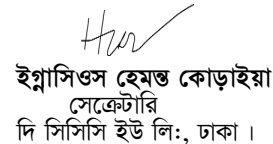 ইগ্নাসিওস হেমন্ত কোড়াইয়া
সেক্রেটারি
দি সিসিসি ইউ লি:, ঢাকা ।